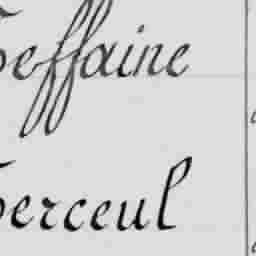 Teffaine
Terceul